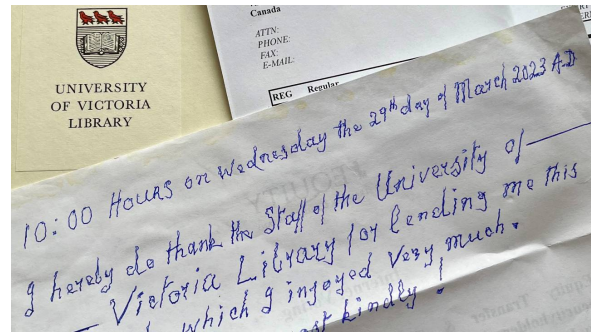 UNIVERSITY
OF VICTORIA
LIBRARY
Canada
ATTN:
PHONE:
FAX:
E-MAIL:
REG Regular
10:00 Hours on Wednesday the 29th day of March 2023 A.D
I hereby do thank the Staff of the University of
Victoria Library for lending me this
which I injoyed very much.
kindly!